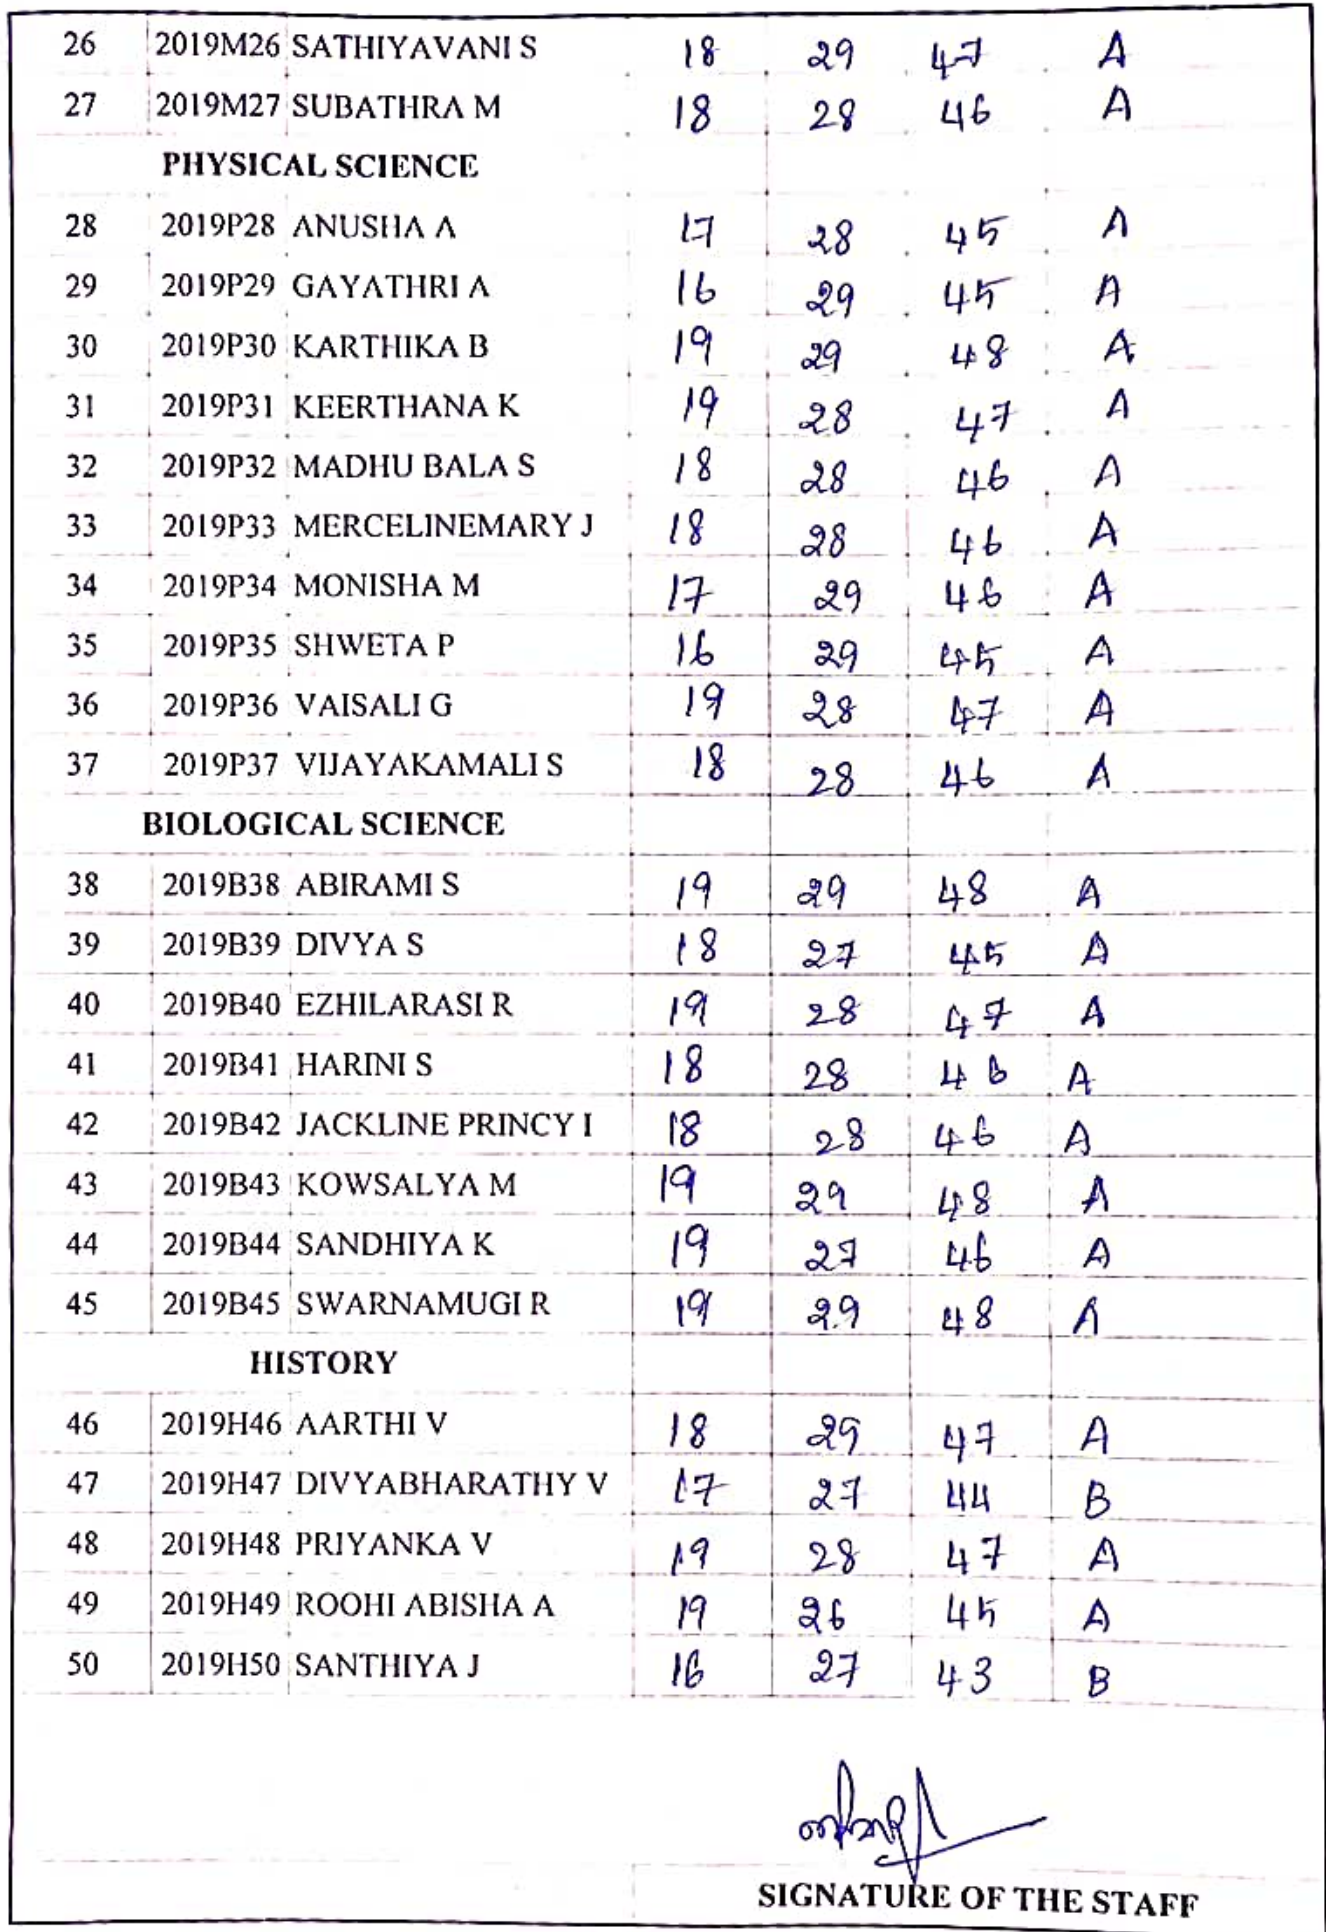 26 2019M26 SATHIYAVANI S 18 29 47 A
27 2019M27 SUBATHRA M 18 28 46 A
PHYSICAL SCIENCE
28 2019P28 ANUSHA A 17 28 45 A
29 2019P29 GAYATHRI A 16 29 45 A
30 2019P30 KARTHIKA B 19 29 48 A
31 2019P31 KEERTHANA K 19 28 47 A
32 2019P32 MADHU BALA S 18 28 46 A
33 2019P33 MERCELINEMARY J 18 28 46 A
34 2019P34 MONISHA M 17 29 46 A
35 2019P35 SHWETA P 16 29 45 A
36 2019P36 VAISALI G 19 28 47 A
37 2019P37 VIJAYAKAMALI S 18 28 46 A
BIOLOGICAL SCIENCE
38 2019B38 ABIRAMI S 19 29 48 A
39 2019B39 DIVYA S 18 27 45 A
40 2019B40 EZHILARASI R 19 28 47 A
41 2019B41 HARINI S 18 28 46 A
42 2019B42 JACKLINE PRINCY I 18 28 46 A
43 2019B43 KOWSALYA M 19 29 48 A
44 2019B44 SANDHIYA K 19 27 46 A
45 2019B45 SWARNAMUGI R 19 29 48 A
HISTORY
46 2019H46 AARTHI V 18 29 47 A
47 2019H47 DIVYABHARATHY V 17 27 44 B
48 2019H48 PRIYANKA V 19 28 47 A
49 2019H49 ROOHI ABISHA A 19 26 45 A
50 2019H50 SANTHIYA J 16 27 43 B
SIGNATURE OF THE STAFF